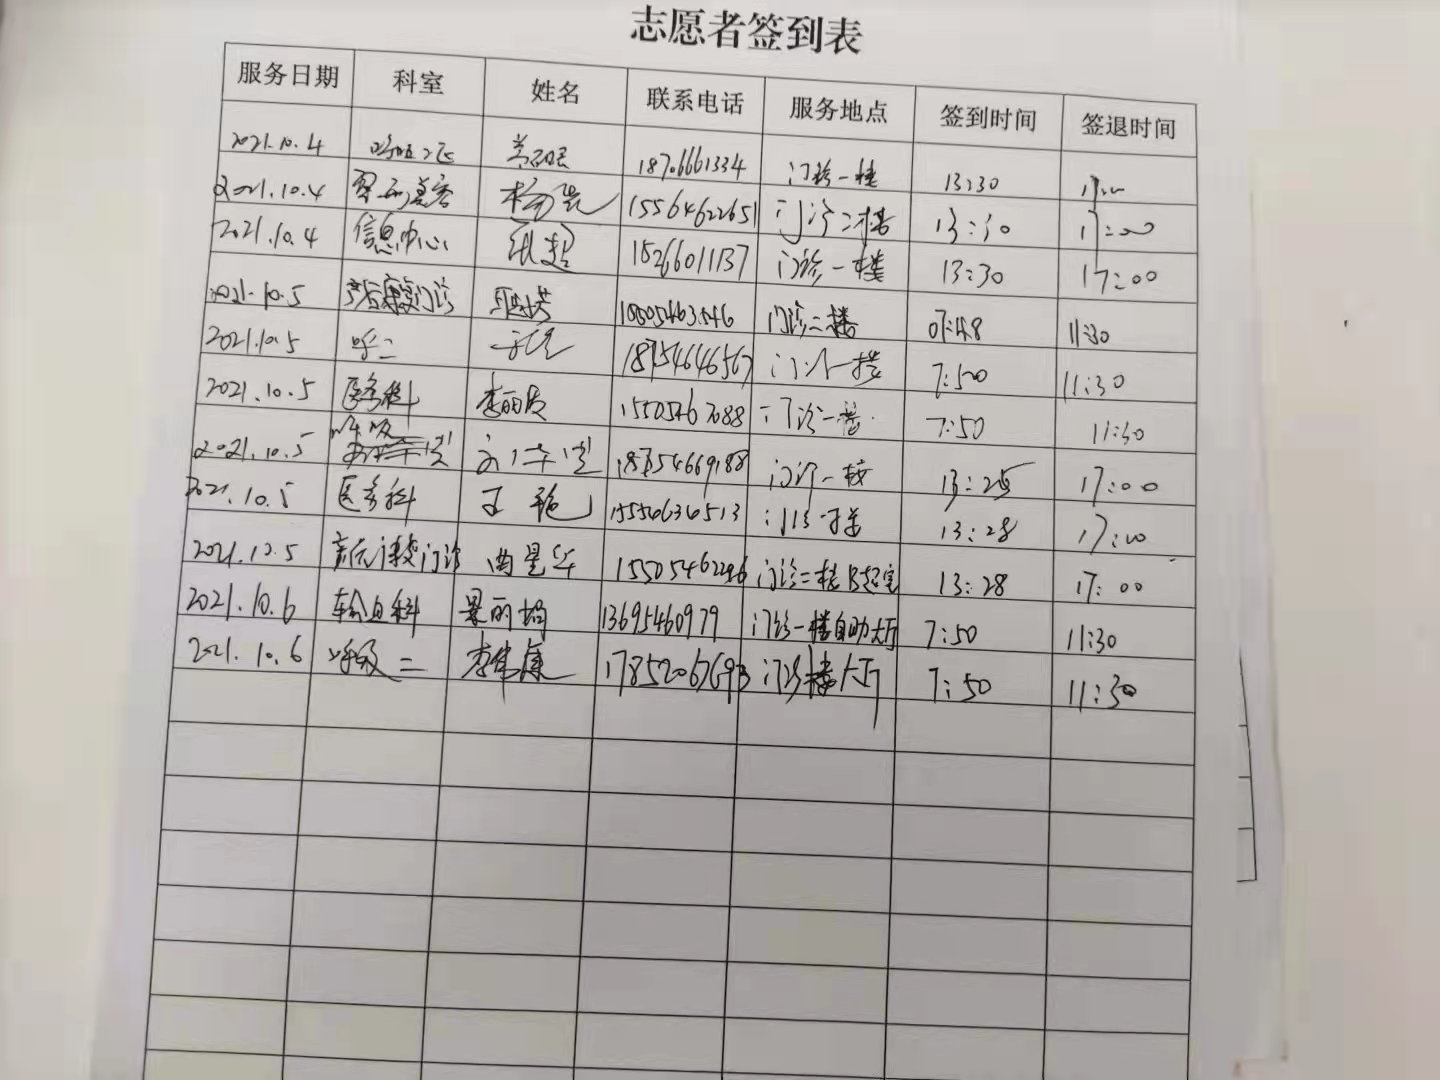 志愿者签到表
服务日期 科室 姓名 联系电话 服务地点 签到时间 签退时间
2021.10.4 18706661334 门诊一楼 13:30
2021.10.4 杨 15564622651 门诊二楼 13:30 17:00
2021.10.4 信息中心 张超 18266011137 门诊一楼 13:30 17:00
2021.10.5 产后康复门诊 门诊二楼 07:48 11:30
2021.10.5 呼二 18754646567 门诊一楼 7:50 11:30
2021.10.5 医务科 李丽 15505467088 门诊一楼 7:50 11:30
2021.10.5 呼吸 18754669188 门诊一楼 13:25 17:00
2021.10.5 医务科 王艳 15554634513 13:28 17:00
2021.10.5 门诊 曲星华 15505462296 门诊二楼B超室 13:28 17:00
2021.10.6 输血科 景丽娟 13695460979 门诊一楼自助大厅 7:50 11:30
2021.10.6 呼吸二 李伟康 17852067693 门诊楼大厅 7:50 11:30